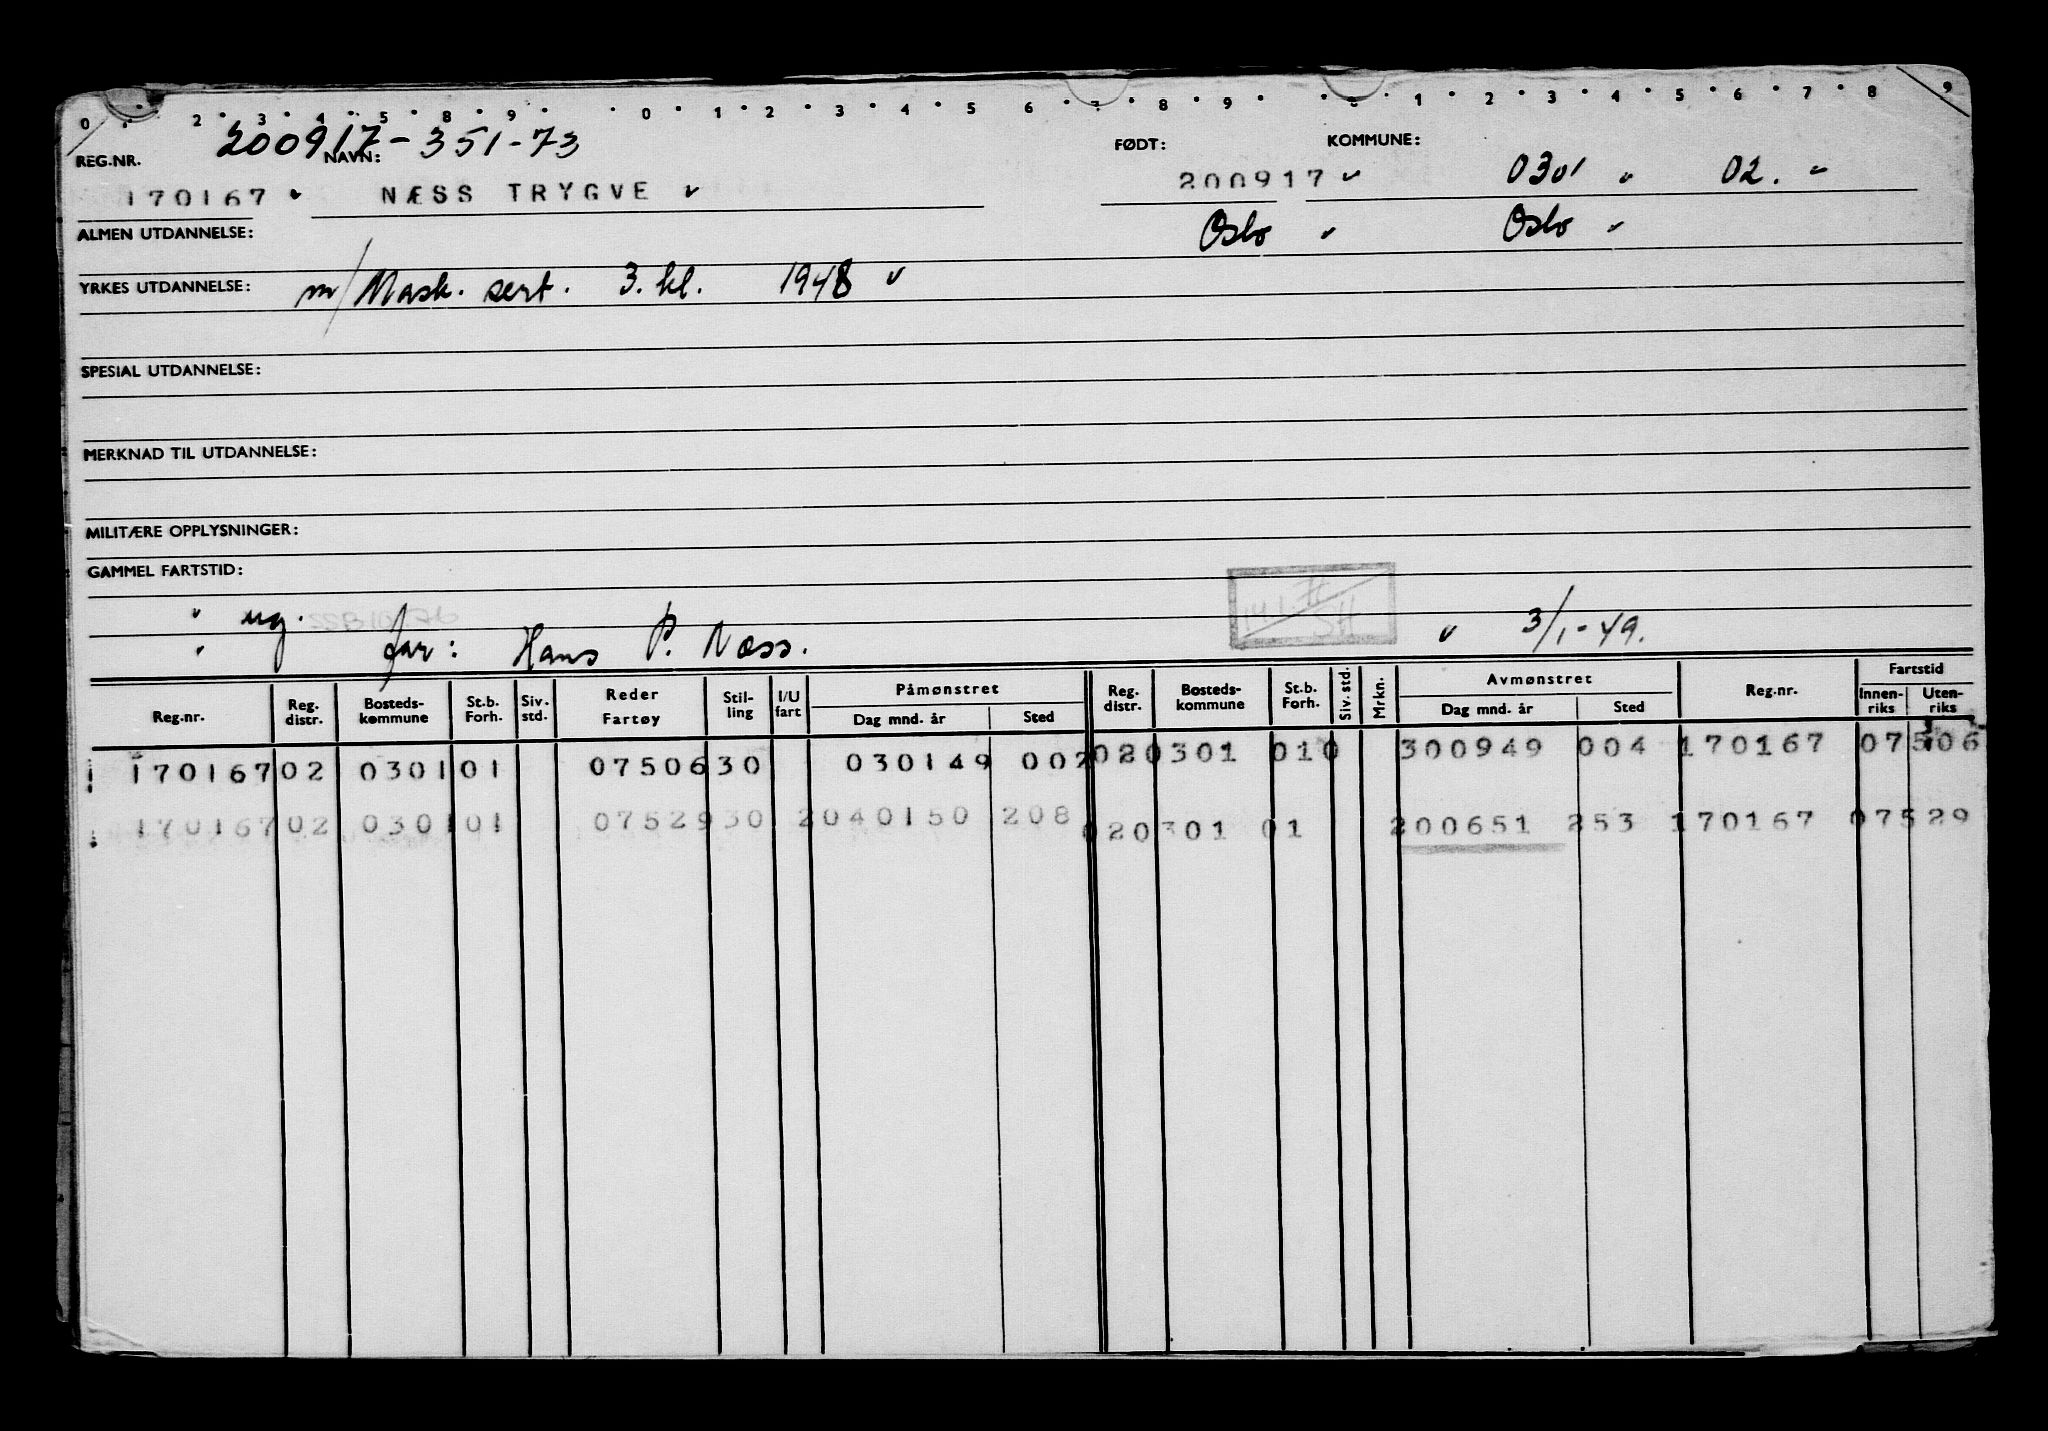 0 2 3 4 5 8 9 0 1 2 3 4 5 6 7 8 9 1 2 3 4 5 6 7 8 9
200917-351-73
REG.NR. NAVN: FØDT: KOMMUNE:
170167 NÆSS TRYGVE 200917 0301 02.
ALMEN UTDANNELSE: Oslo Oslo
YRKES UTDANNELSE: m/Mask. sert. 3. kl. 1948
SPESIAL UTDANNELSE:
MERKNAD TIL UTDANNELSE:
MILITÆRE OPPLYSNINGER:
GAMMEL FARTSTID:
ug. far: Hans P. Næss. 3/1-49.
Reg.nr. Reg. distr. Bosteds-kommune St.b. Forh. Siv. std. Reder Fartøy Stil-ling I/U fart Påmønstret Dag mnd. år Sted Reg. distr. Bosteds-kommune St.b. Forh. Siv. std. Mrkn. Avmønstret Dag mnd. år Sted Reg.nr. Fartstid Innen-riks Uten-riks
170167 02 0301 01 07506 30 030149 002 02 0301 010 300949 004 170167 07506
170167 02 0301 01 07529 30 2 040150 208 02 0301 01 200651 253 170167 07529